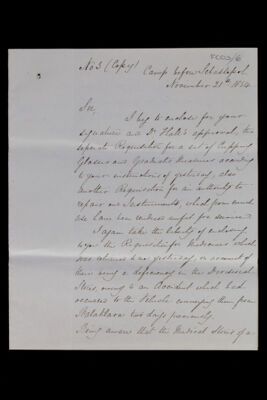 FCO3/6
No 3 (Copy)
Camp before Sebastopol
November 21st 1854
Sir,
I beg to enclose for your
signature and Dr Hall's approval, the
separate Requisition for a set of Cupping
Glasses and Graduated Measures according
to your instructions of yesterday, also
another Requisition for an authority to
repair our Instruments, which from much
use have been rendered unfit for service.
I again take the liberty of enclosing
to you the Requisition for Medicines which
was returned to me yesterday on account of
there being a deficiency in the Divisional
Stores, owing to an Accident which had
occurred to the Vehicle conveying them from
Balaklava two days previously.
Being aware that the Medical Stores of a